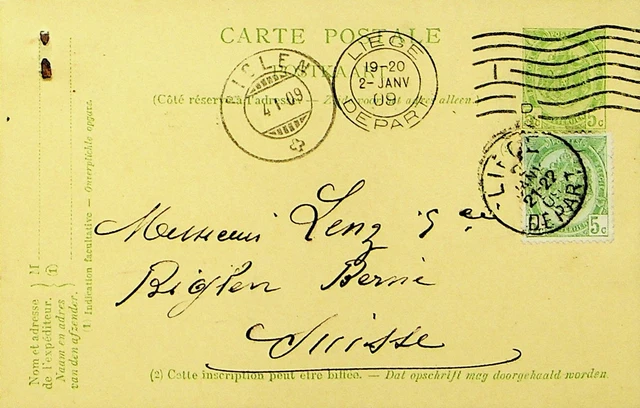 CARTE POSTALE
POSTKAART
(Côté réservé à l'adresse. — Zijde voor het adres alleen.)
BIGLEN
4.I.09
LIÉGE
19-20
2-JANV
09
DEPART
5c
LIÉGE
21-22
DEPART
5c
Messieurs Lenz & Cie
Biglen Berne
Suisse
(2) Cette inscription peut être biffée. — Dat opschrift mag doorgehaald worden.
Nom et adresse
de l'expéditeur.
Naam en adres
van den afzender.
M
(1)
(1) Indication facultative — Onverplichte opgave.